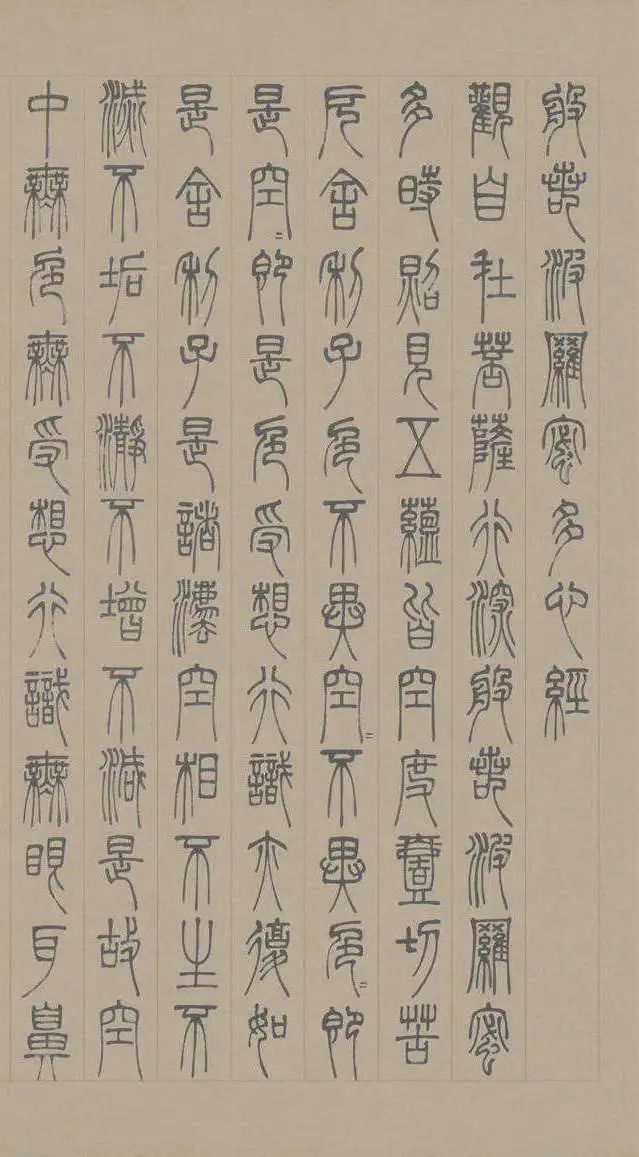 般若波羅蜜多心經
觀自在菩薩行深般若波羅蜜
多時照見五蘊皆空度壹切苦
厄舍利子色不異空〻不異色〻即
是空〻即是色受想行識亦復如
是舍利子是諸法空相不生不
滅不垢不淨不增不減是故空
中無色無受想行識無眼耳鼻